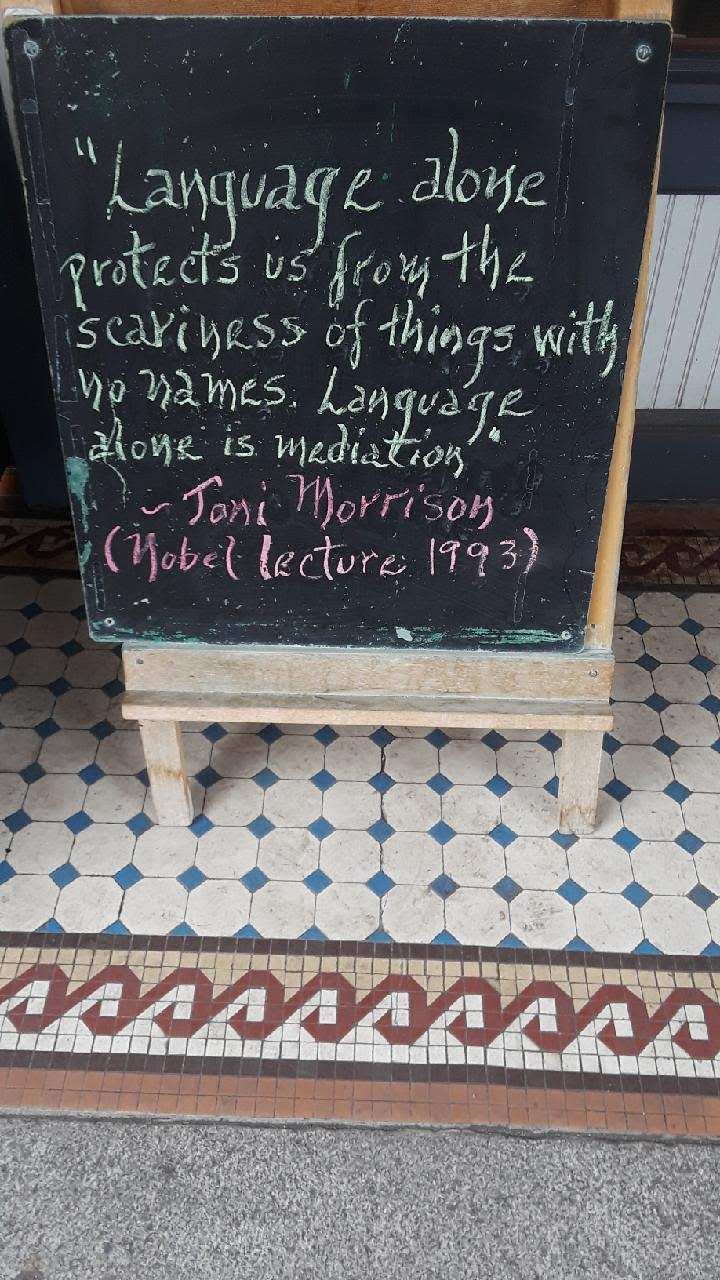 "Language alone
protects us from the
scariness of things with
no names. Language
alone is mediation"
~ Toni Morrison
(Nobel lecture 1993)